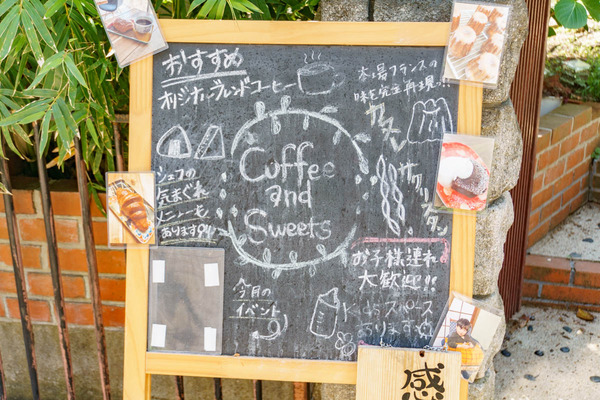 おすすめ
オリジナルブレンドコーヒー
本場フランスの
味を完全再現っ!!
カヌレ
サクリスタン
シェフの
気まぐれ
メニューも
あります!!
Coffee
and
Sweets
お子様連れ
大歓迎!!
今月の
イベント
Kidsスペース
あります
感